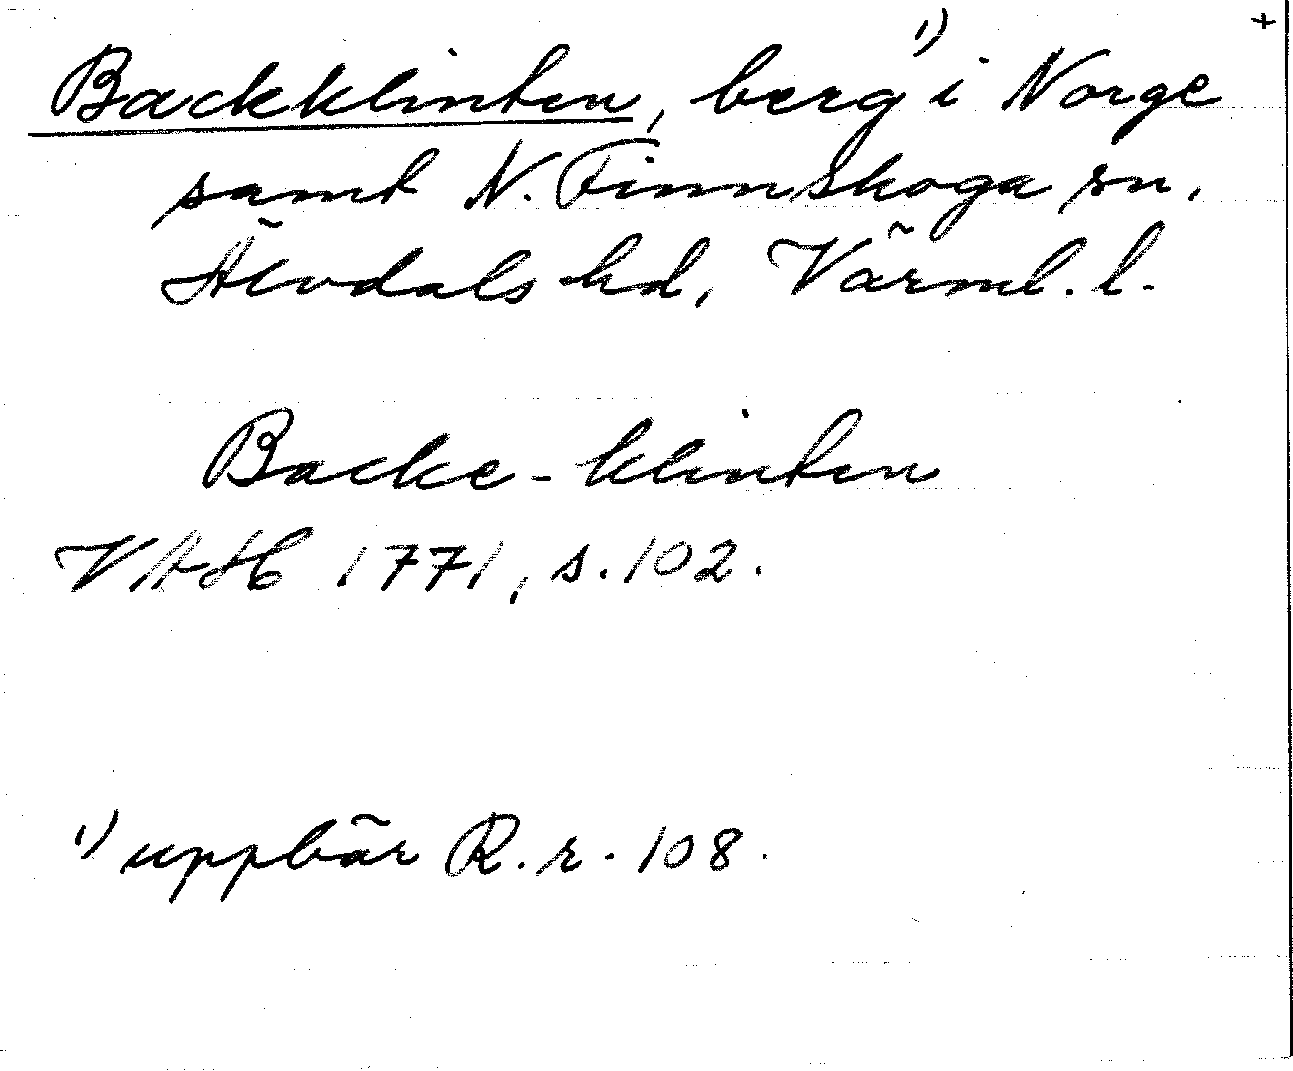 +
Backklinten, berg¹⁾ i Norge
samt N. Finnskoga sn,
Älvdals hd, Värml. l.
Backe-klinten
VAH 1771, s. 102.
¹⁾ uppbär R.r. 108.